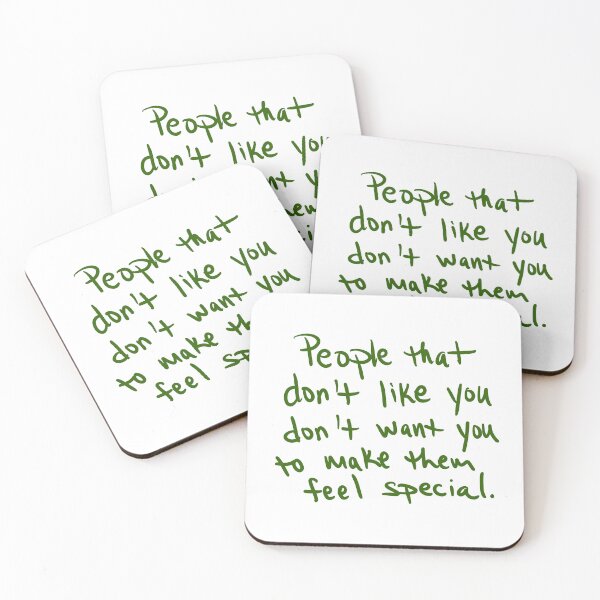 People that
don't like you
People that
don't like you
don't want you
to make them
People that
don't like you
don't want you
to make
feel
People that
don't like you
don't want you
to make them
feel special.